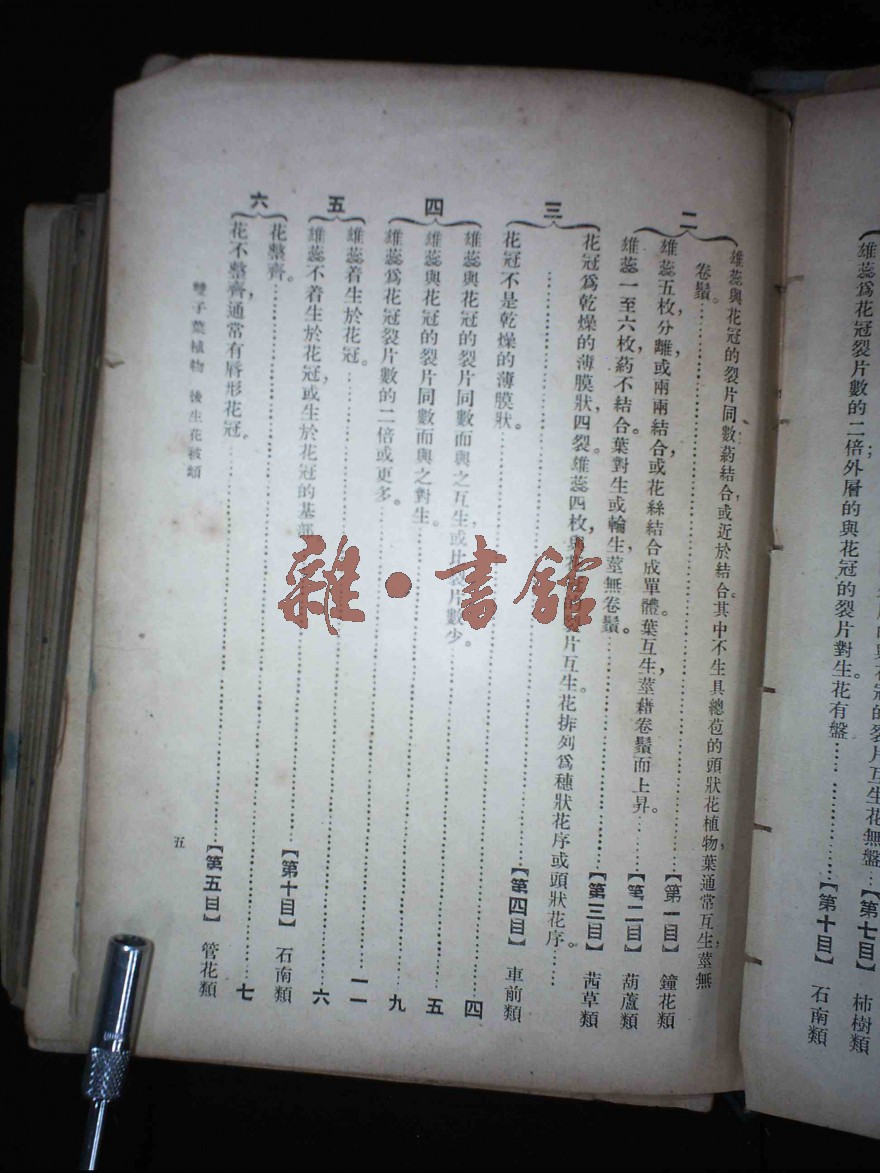 裂片互生花無盤…【第七目】柿樹類
雄蕊爲花冠裂片數的二倍外層的與花冠的裂片對生。花有盤……【第十目】石南類
二
雄蕊與花冠的裂片同數，葯結合或近於結合。其中不生具總苞的頭狀花植物，葉通常互生，莖無
卷鬚。……【第一目】鐘花類
雄蕊五枚，分離或兩兩結合或花絲結合成單體。葉互生，莖藉卷鬚而上昇。…【第二目】葫蘆類
雄蕊一至六枚，葯不結合。葉對生或輪生，莖無卷鬚。……【第三目】茜草類
三
花冠爲乾燥的薄膜狀，四裂。雄蕊四枚，與花冠的裂片互生。花排列爲穗狀花序或頭狀花序。……
……【第四目】車前類
花冠不是乾燥的薄膜狀。……四
四
雄蕊與花冠的裂片同數而與之互生，或比裂片數少。……五
雄蕊與花冠的裂片同數而與之對生。……九
雄蕊爲花冠裂片數的二倍或更多。……一一
五
雄蕊着生於花冠。……六
雄蕊不着生於花冠，或生於花冠的基部……【第十目】石南類
六
花整齊。……七
花不整齊，通常有唇形花冠。……【第五目】管花類
雙子葉植物 後生花被類
五
雜·書館